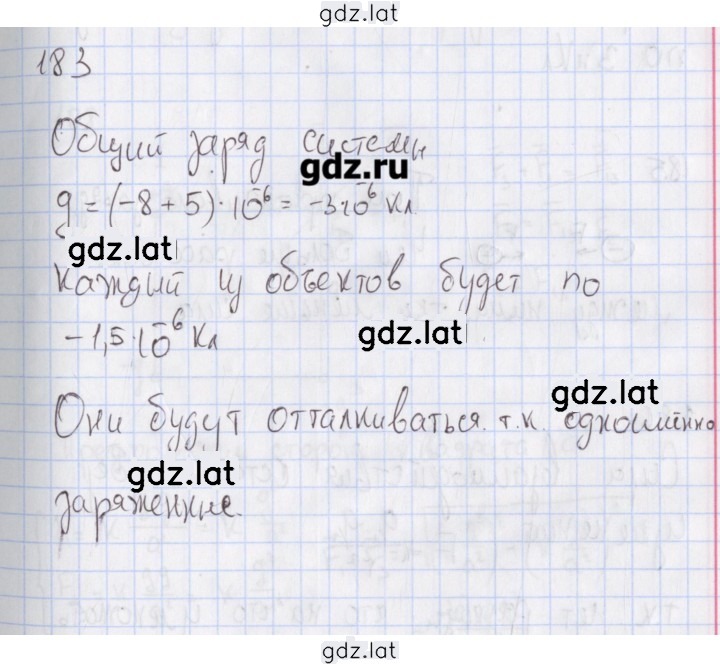 gdz.lat
183
Общий заряд системы
gdz.ru
q = (-8 + 5)·10⁻⁶ = -3·10⁻⁶ Кл
gdz.lat
Каждый из объектов будет по
-1,5·10⁻⁶ Кл
gdz.lat
gdz.lat
Они будут отталкиваться т.к. одноименно
gdz.lat
заряженные.
gdz.lat